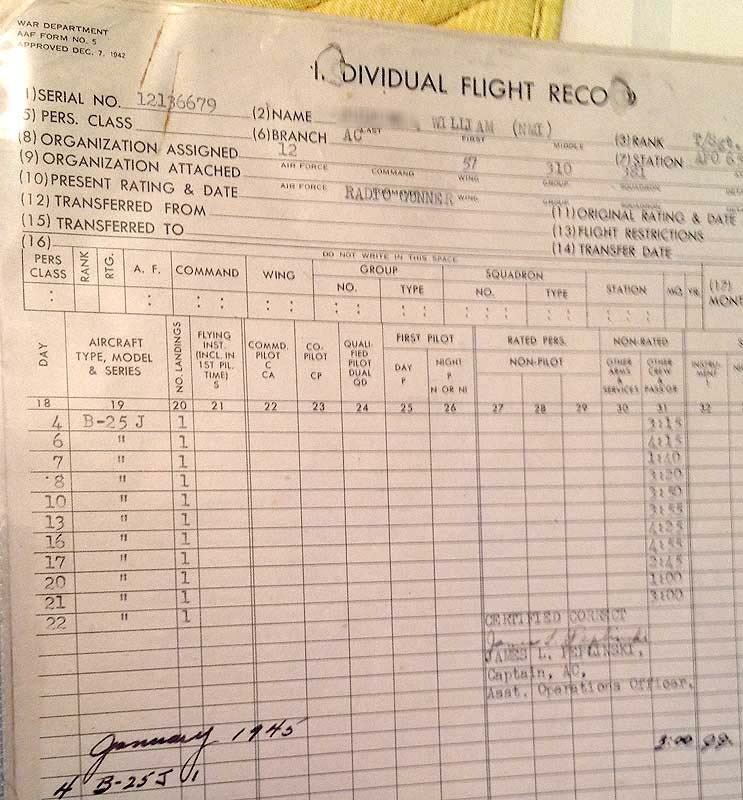 WAR DEPARTMENT
AAF FORM NO. 5
APPROVED DEC. 7, 1942
I. DIVIDUAL FLIGHT RECO D
1) SERIAL NO. 12136679 (2) NAME WILLIAM (NMI) (3) RANK T/Sgt.
LAST FIRST MIDDLE
5) PERS. CLASS (6) BRANCH AC (7) STATION APO
(8) ORGANIZATION ASSIGNED 12 57 310 381
AIR FORCE COMMAND WING GROUP SQUADRON
(9) ORGANIZATION ATTACHED
AIR FORCE COMMAND WING GROUP SQUADRON
(10) PRESENT RATING & DATE RADIO GUNNER (11) ORIGINAL RATING & DATE
(12) TRANSFERRED FROM (13) FLIGHT RESTRICTIONS
(15) TRANSFERRED TO (14) TRANSFER DATE
(16) DO NOT WRITE IN THIS SPACE
PERS CLASS RANK RTG. A. F. COMMAND WING GROUP SQUADRON STATION MO. YR. (17) MONT
NO. TYPE NO. TYPE
DAY AIRCRAFT TYPE, MODEL & SERIES NO. LANDINGS FLYING INST. (INCL. IN 1ST PIL. TIME) S COMMD. PILOT C CA CO-PILOT CP QUALI-FIED PILOT DUAL QD FIRST PILOT RATED PERS. NON-RATED
DAY P NIGHT P N OR NI NON-PILOT OTHER ARMS & SERVICES OTHER CREW & PASS'GR INSTRU-MENT I
18 19 20 21 22 23 24 25 26 27 28 29 30 31 32
4 B-25 J 1 3:15
6 " 1 4:15
7 " 1 1:40
8 " 1 3:20
10 " 1 3:50
13 " 1 3:55
16 " 1 4:25
17 " 1 4:55
20 " 1 2:45
21 " 1 1:00
22 " 1 3:00
CERTIFIED CORRECT
JAMES L. PEPLINSKI,
Captain, AC,
Asst. Operations Officer.
January 1945
4 B-25J 1 3:00